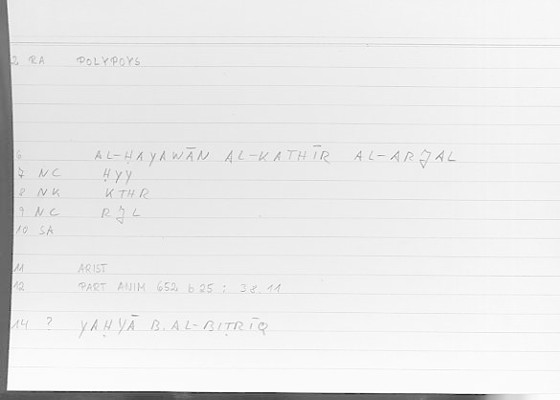 2 RA POLYPOYS
6 AL-ḤAYAWĀN AL-KATHĪR AL-ARJAL
7 NC ḤYY
8 NK KTHR
9 NC RJL
10 SA
11 ARIST
12 PART ANIM 652 b 25 : 38.11
14 ? YAḤYĀ B. AL-BIṬRĪQ